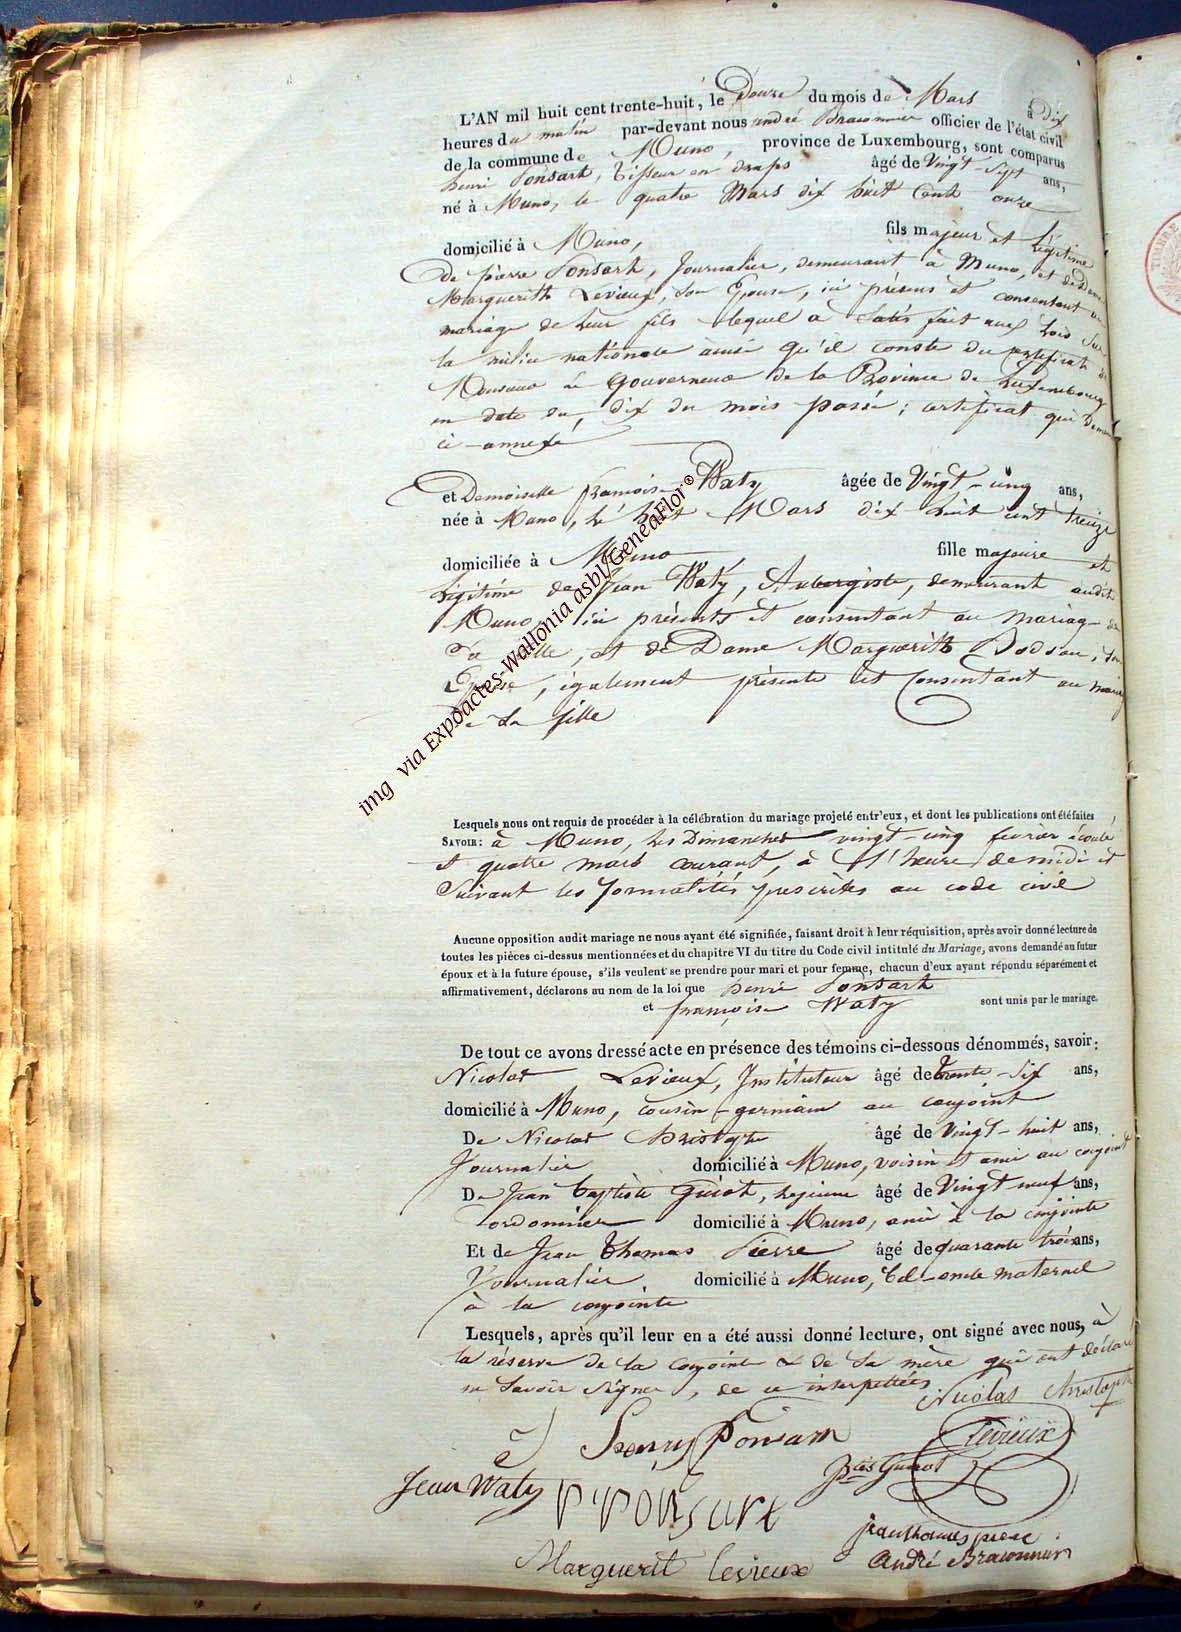 L'AN mil huit cent trente-huit, le Douze du mois de Mars à dix
heures du matin par-devant nous andré Braconnier officier de l'état civil
de la commune de Muno, province de Luxembourg, sont comparus
henri Ponsart, Tisseur en draps âgé de Vingt-Sept ans,
né à Muno, le quatre Mars dix huit Cent onze
domicilié à Muno, fils majeur et Légitime
De pierre Ponsart, Journalier, demeurant à Muno, et de Dame
Marguerith Levieux, son Epouse, ici présens et consentant au
mariage de leur fils lequel a Satis fait aux Lois sur
la milice nationale ainsi qu'il conste du certificat de
Monsieur le Gouverneur de la Province de Luxembourg
en date du dix du mois passé; certificat qui
ci-annexé
et Demoiselle françoise Waty âgée de Vingt-cinq ans,
née à Muno, le huit Mars dix huit cent treize
domiciliée à Muno, fille majeure et
légitime de Jean Waty, Aubergiste, demeurant audit
Muno, ici présents et consentant au mariage de
sa fille, et de Dame Marguerith Dodeau, son
Epouse, également présente et Consentant au mariage
de sa fille
Lesquels nous ont requis de procéder à la célébration du mariage projeté entr'eux, et dont les publications ont été faites
SAVOIR: à Muno, les Dimanches vingt-cinq fevrier écoulé
et quatre mars courant, à l'heure de midi et
Suivant les formalités prescrites au code civil
Aucune opposition audit mariage ne nous ayant été signifiée, faisant droit à leur réquisition, après avoir donné lecture de
toutes les pièces ci-dessus mentionnées et du chapitre VI du titre du Code civil intitulé du Mariage, avons demandé au futur
époux et à la future épouse, s'ils veulent se prendre pour mari et pour femme, chacun d'eux ayant répondu séparément et
affirmativement, déclarons au nom de la loi que henri Ponsart
et françoise Waty sont unis par le mariage.
De tout ce avons dressé acte en présence des témoins ci-dessous dénommés, savoir:
Nicolas Levieux, Instituteur âgé de Trente-Six ans,
domicilié à Muno, cousin-germain au conjoint
De Nicolas Christophe âgé de Vingt-huit ans,
Journalier domicilié à Muno, voisin et ami au conjoint
De Jean baptiste Guiot, Lejeune âgé de Vingt neuf ans,
Cordonnier domicilié à Muno, ami à la conjointe
Et de Jean Thomas Pierre âgé de quarante trois ans,
Journalier, domicilié à Muno, bel-oncle maternel
à la conjointe
Lesquels, après qu'il leur en a été aussi donné lecture, ont signé avec nous, à
la réserve de la conjointe et de sa mère qui ont déclaré
ne Savoir Signer, de ce interpellées
Nicolas Christophe
Henry Ponsart Levieux
Jean Waty P Ponsart Bte Guiot
jean thomas pierre
Marguerit levieux André Braconnier
img via Expoactes-Wallonia asbl/GeneaFlor®